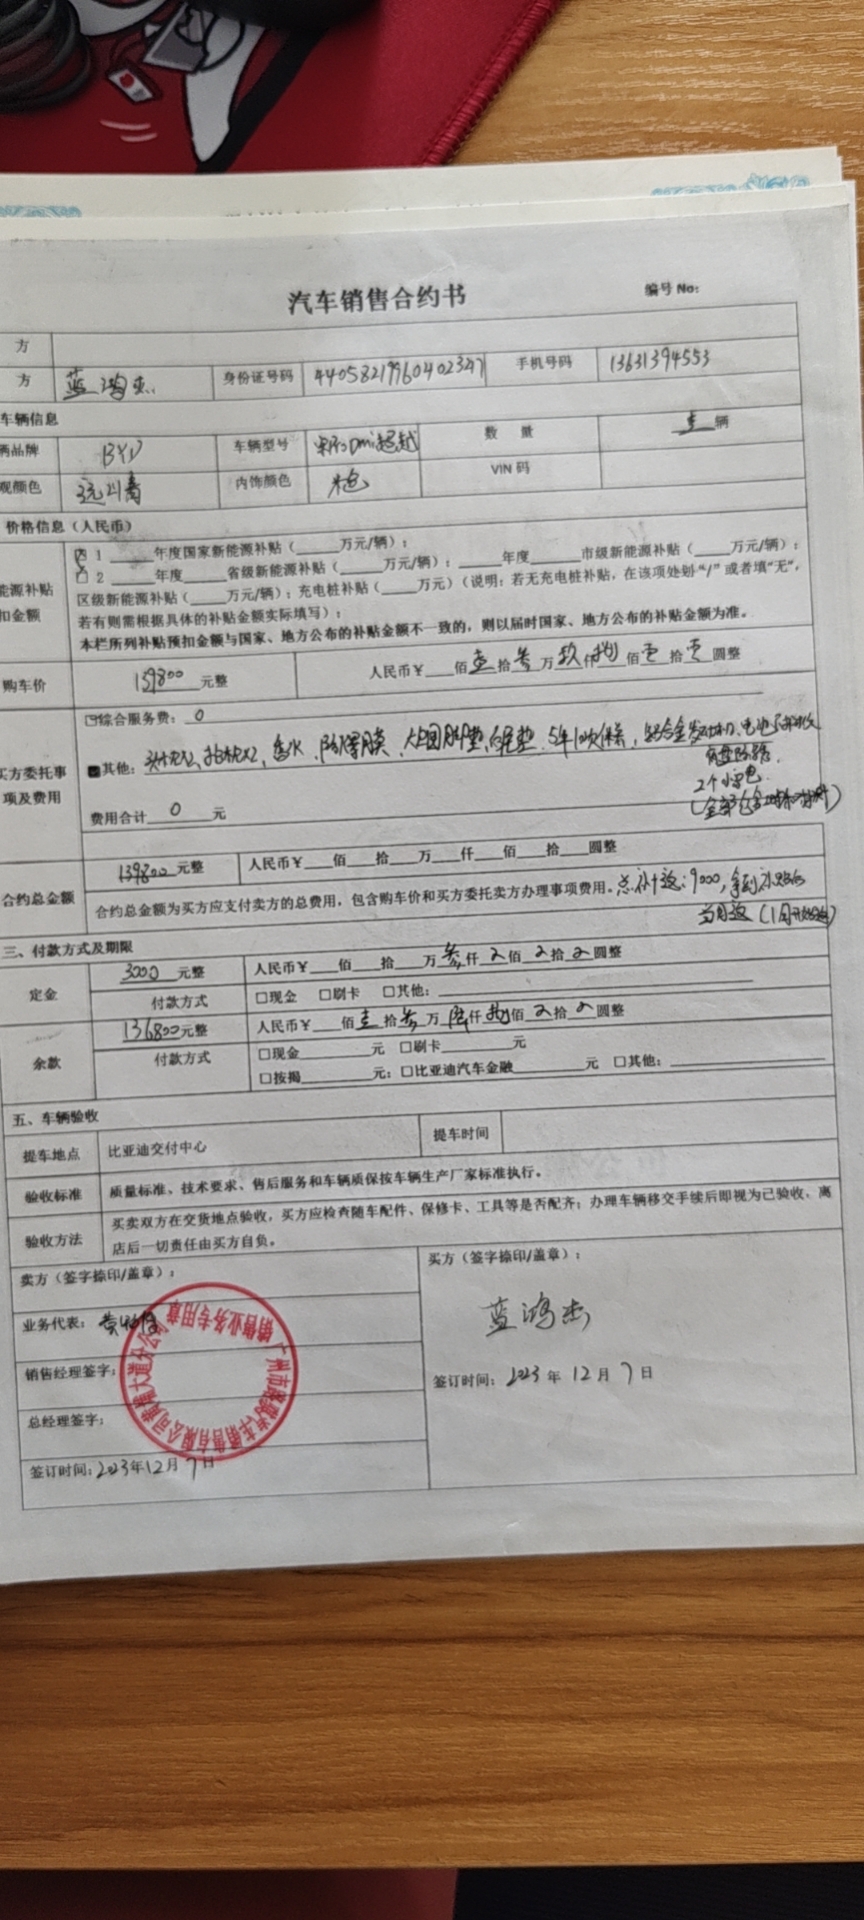 汽车销售合约书
编号 No:
方
方 蓝鸿杰 身份证号码 440582199604023471 手机号码 13631394553
车辆信息
辆品牌 BYD 车辆型号 宋Pro Dmi超越 数 量 壹 辆
观颜色 远山青 内饰颜色 米色 VIN 码
价格信息（人民币）
能源补贴
扣金额
☑ 1 ____年度国家新能源补贴（____万元/辆）；
☐ 2 ____年度____省级新能源补贴（____万元/辆）；____年度____市级新能源补贴（____万元/辆）；
区级新能源补贴（____万元/辆）；充电桩补贴（____万元）（说明：若无充电桩补贴，在该项处划“/”或者填“无”，
若有则需根据具体的补贴金额实际填写）；
本栏所列补贴预扣金额与国家、地方公布的补贴金额不一致的，则以届时国家、地方公布的补贴金额为准。
购车价 139800 元整 人民币￥___佰壹拾叁万玖仟捌佰 拾 圆整
买方委托事
项及费用
☑综合服务费：0
其他： 香水，防爆膜，大包围脚垫， 尾垫，5年10次保养，铝合金
2个小电
费用合计 0 元
合约总金额 139800 元整 人民币￥___佰___拾___万___仟___佰___拾___圆整
合约总金额为买方应支付卖方的总费用，包含购车价和买方委托卖方办理事项费用。总补 ：9000，拿到
当月返
三、付款方式及期限
定金 3000 元整 人民币￥___佰___拾___万叁仟 佰 拾 圆整
付款方式 ☐现金 ☐刷卡 ☐其他：
余款 136800 元整 人民币￥___佰壹拾叁万陆仟捌佰 拾 圆整
付款方式 ☐现金____元 ☐刷卡____元
☐按揭____元；☐比亚迪汽车金融____元 ☐其他：
五、车辆验收
提车地点 比亚迪交付中心 提车时间
验收标准 质量标准、技术要求、售后服务和车辆质保按车辆生产厂家标准执行。
验收方法 买卖双方在交货地点验收，买方应检查随车配件、保修卡、工具等是否配齐；办理车辆移交手续后即视为已验收，离
店后一切责任由买方自负。
卖方（签字捺印/盖章）：
买方（签字捺印/盖章）：
业务代表：
蓝鸿杰
销售经理签字：
签订时间：2023 年 12 月 7 日
总经理签字：
签订时间：2023年12月7日
销售业务专用章